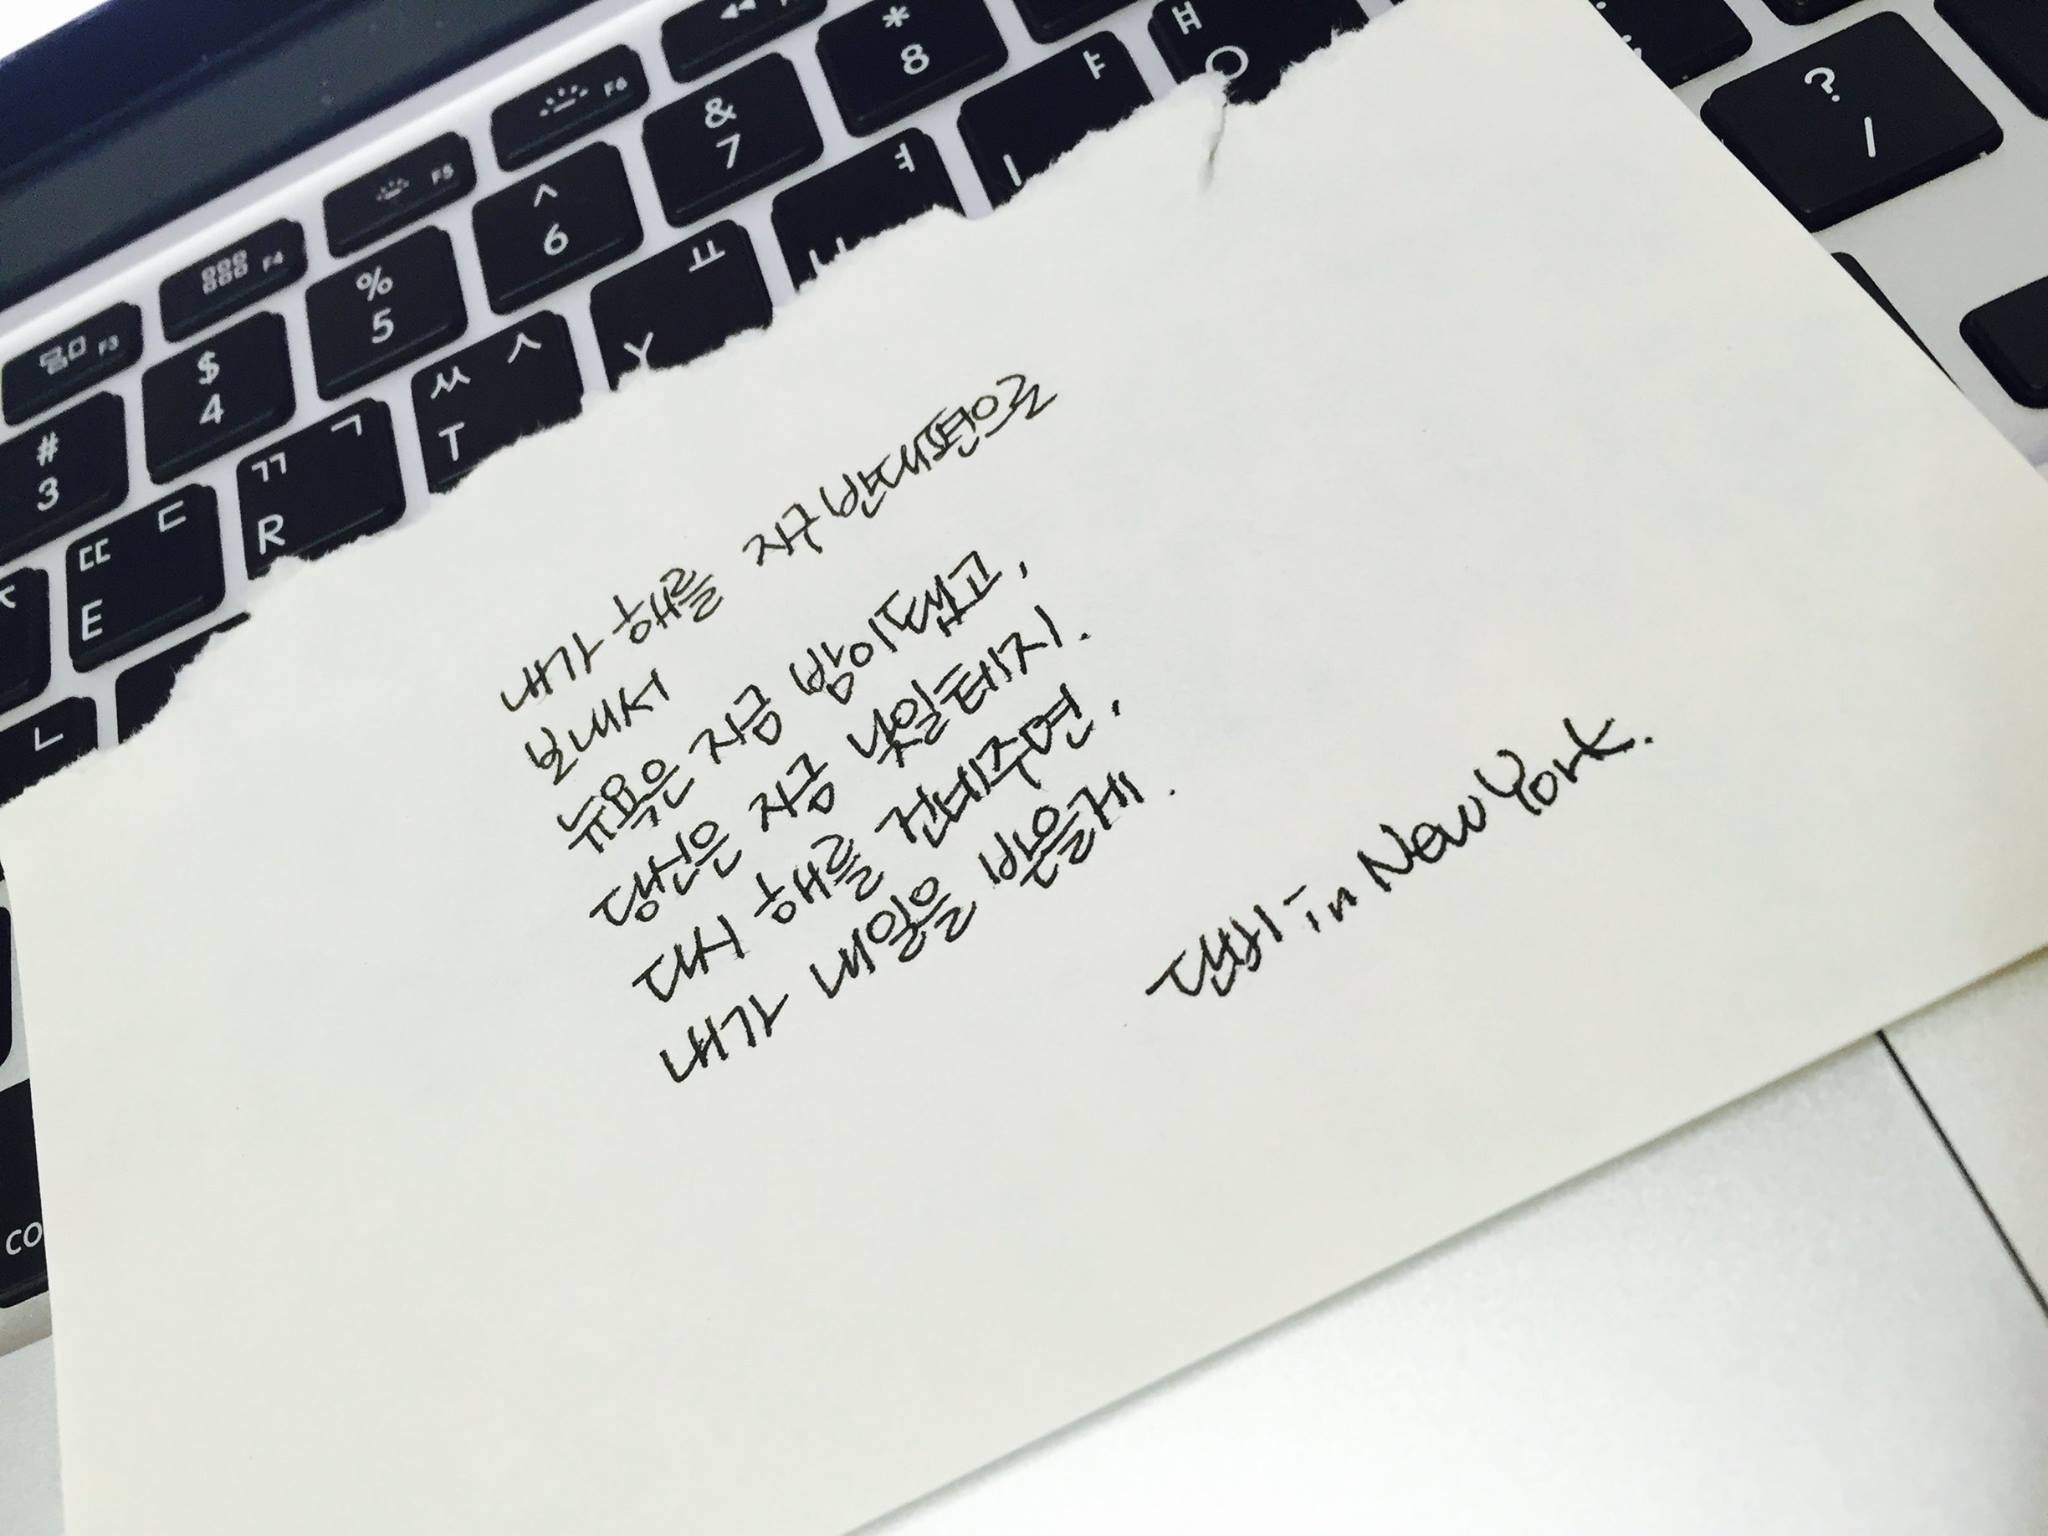 F3 F4 F5 F6
# 3 $ 4 % 5 ^ 6 & 7 * 8
ㄸ ㄷ E ㄲ ㄱ R ㅆ ㅅ T ㅛ Y ㅕ ㅑ ㅒ O
ㄴ
? /
내가 해를 지구 반대편으로
보내서
뉴욕은 지금 밤이 됐고,
당신은 지금 낮일테지.
다시 해를 건네주면,
내가 내일을 받을게.
in New York.